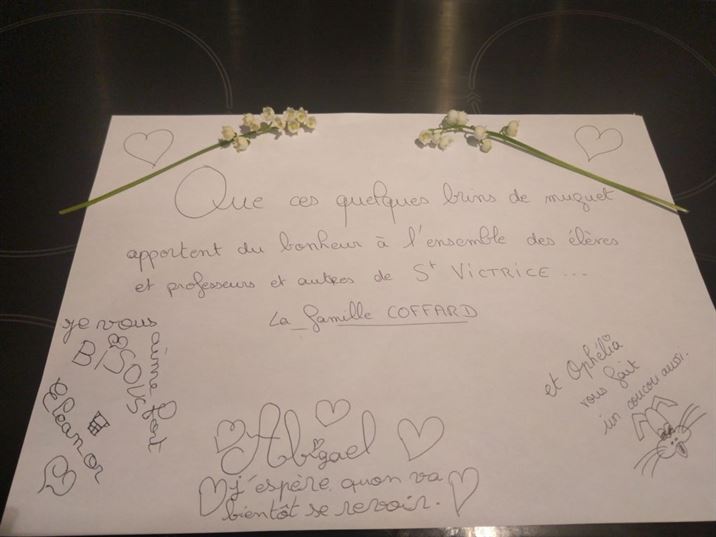 Que ces quelques brins de muguet
apportent du bonheur à l'ensemble des élèves
et professeurs et autres de St VICTRICE ...
La famille COFFARD
je vous
aime fort
BISOUS
Eleanor
Abigael
j'espère quon va
bientôt se revoir.
et Ophélia
vous fait
un coucou aussi.